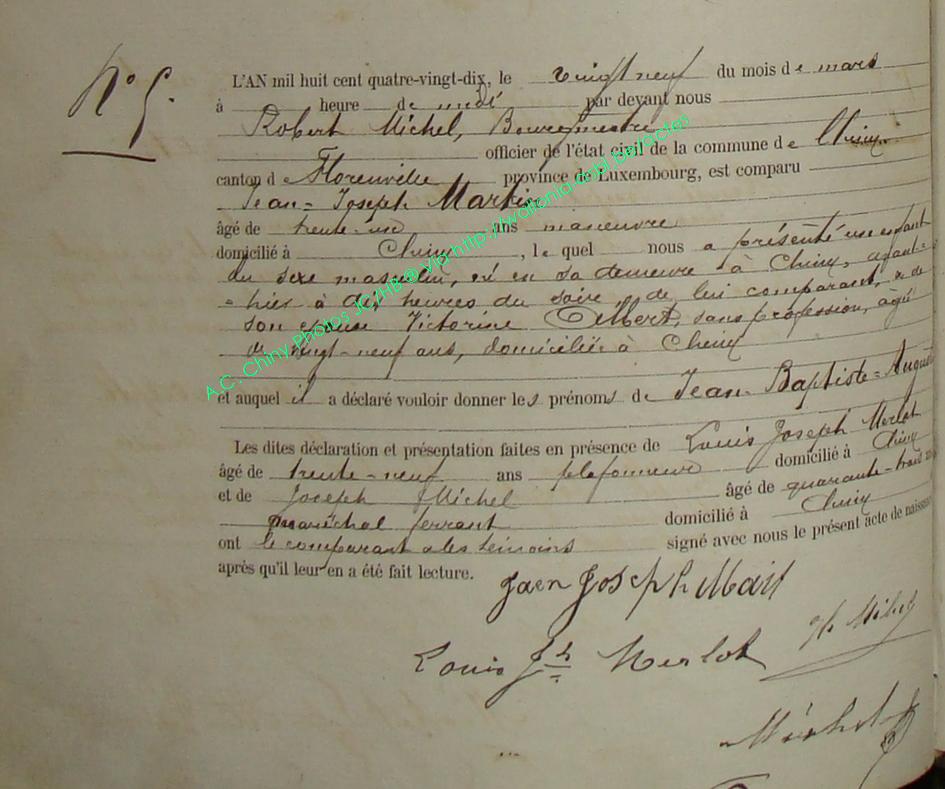 N° 5.
L'AN mil huit cent quatre-vingt-dix, le vingt neuf du mois de mars
à heure de midi par devant nous
Robert Michel, Bourgmestre
officier de l'état civil de la commune de Chiny
canton de Florenville province de Luxembourg, est comparu
Jean-Joseph Martin
âgé de trente-un ans manœuvre
domicilié à Chiny, le quel nous a présenté un enfant
du sexe masculin, né en sa demeure à Chiny, avant-
hier à dix heures du soire, de lui comparant, & de
son épouse Victorine Gilbert, sans profession, âgée
de vingt-neuf ans, domiciliée à Chiny
et auquel il a déclaré vouloir donner les prénoms de Jean-Baptiste-Auguste
Les dites déclaration et présentation faites en présence de Louis Joseph Merlot
âgé de trente-neuf ans plafonneur domicilié à Chiny
et de Joseph Michel âgé de quarante-trois ans
maréchal ferrant domicilié à Chiny
ont le comparant & les témoins signé avec nous le présent acte de naissance
après qu'il leur en a été fait lecture.
Jaen Joseph Mart
Louis Jh Merlot
Jh Michel
Michel
A.C. Chiny Photos JC/HB ® Via http://wallonia.ce